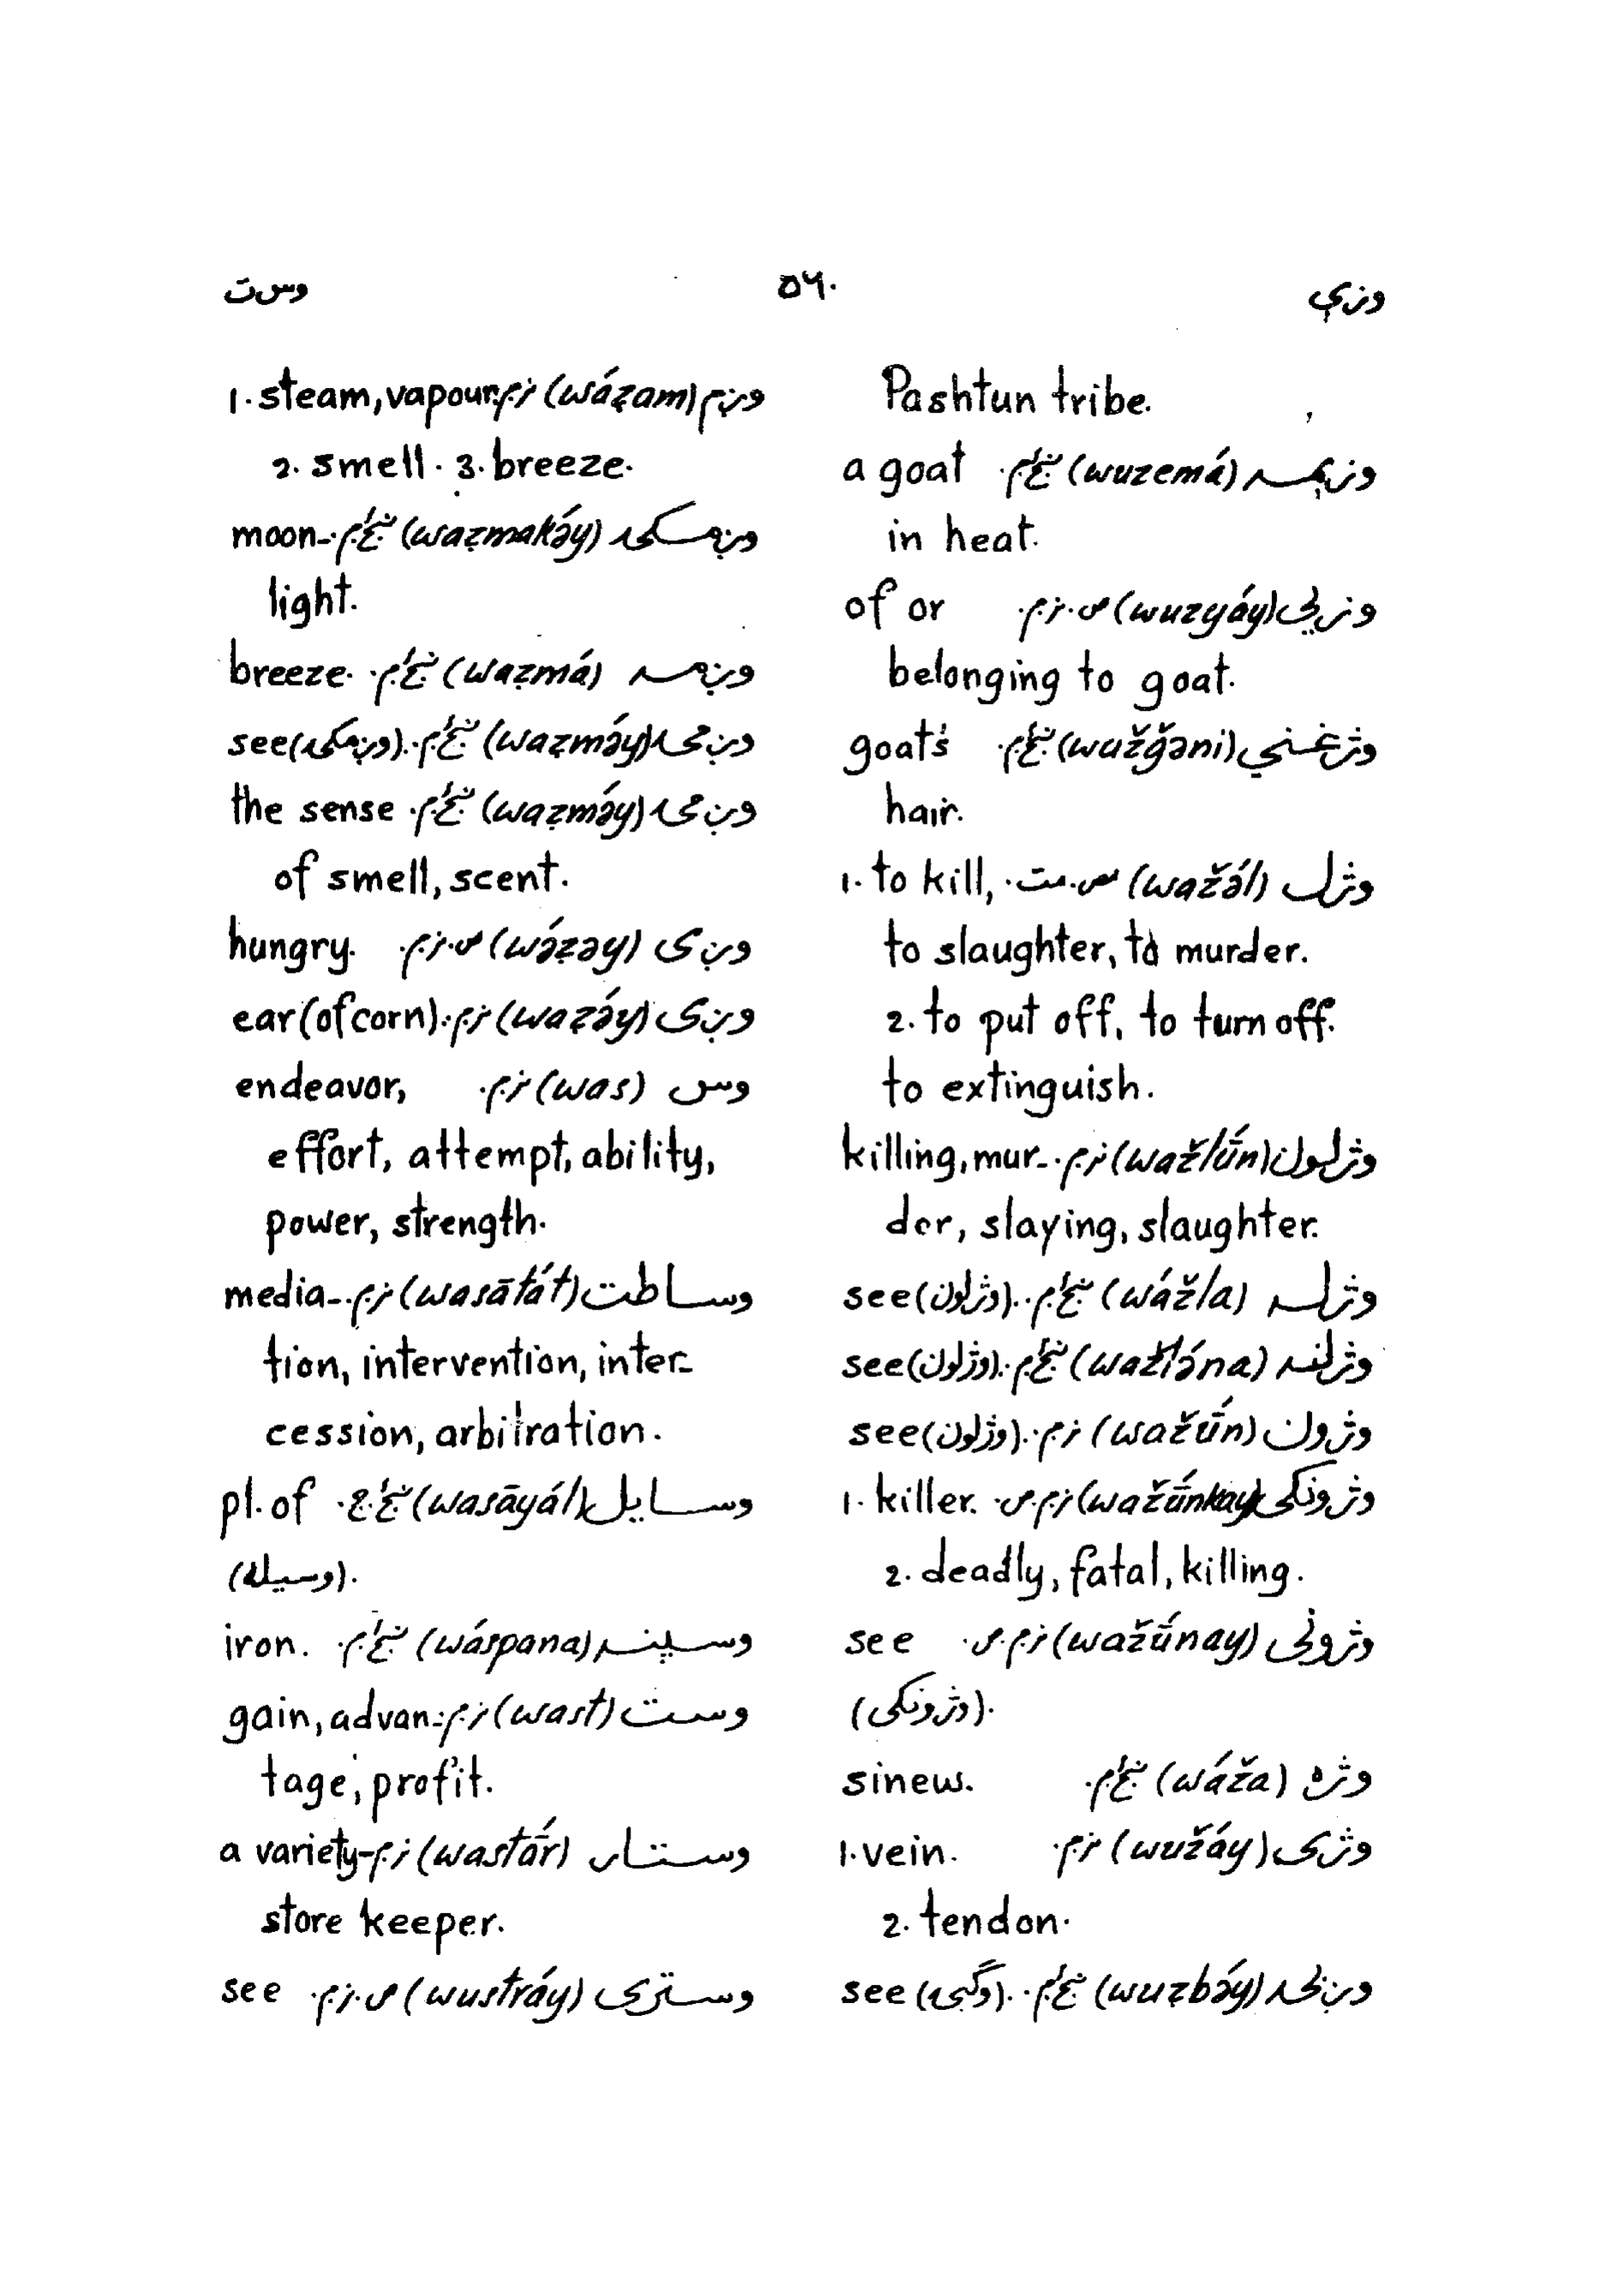 وزې
٥٦٠
وست
Pashtun tribe.
وزېمه (wuzemá) ښځ.م. a goat
in heat.
وزیی (wuzyáy) ص.نر.م. of or
belonging to goat.
وژغنې (wužğəni) ښځ.م. goat's
hair.
وژل (wažə́l) مص.مت. 1. to kill,
to slaughter, to murder.
2. to put off, to turn off.
to extinguish.
وژلون (wažlū́n) نر.م. killing, mur-
der, slaying, slaughter.
وژله (wážla) ښځ.م. see (وژلون).
وژلنه (wažlə́na) ښځ.م. see (وژلون).
وژون (wažū́n) نر.م. see (وژلون).
وژونکی (wažū́nkay) نر.م.ص. 1. killer.
2. deadly, fatal, killing.
وژونی (wažū́nay) نر.م.ص. see
(وژونکی).
وژه (wáža) ښځ.م. sinew.
وژی (wužáy) نر.م. 1. vein.
2. tendon.
وږبۍ (wuẓbə́y) ښځ.م. see (وګبۍ).
وږم (wáẓam) نر.م. 1. steam, vapour.
2. smell. 3. breeze.
وږمکۍ (waẓmakə́y) ښځ.م. moon-
light.
وږمه (waẓmá) ښځ.م. breeze.
وږمۍ (waẓmə́y) ښځ.م. see (وږمکۍ).
وږمۍ (waẓmə́y) ښځ.م. the sense
of smell, scent.
وږی (wə́ẓəy) ص.نر.م. hungry.
وږی (waẓə́y) نر.م. ear (of corn).
وس (was) نر.م. endeavor,
effort, attempt, ability,
power, strength.
وساطت (wasātát) نر.م. media-
tion, intervention, inter-
cession, arbitration.
وسایل (wasāyál) ښځ.ج. pl. of
(وسیله).
وسپنه (wáspana) ښځ.م. iron.
وست (wast) نر.م. gain, advan-
tage, profit.
وستار (wastā́r) نر.م. a variety-
store keeper.
وستری (wustráy) ص.نر.م. see